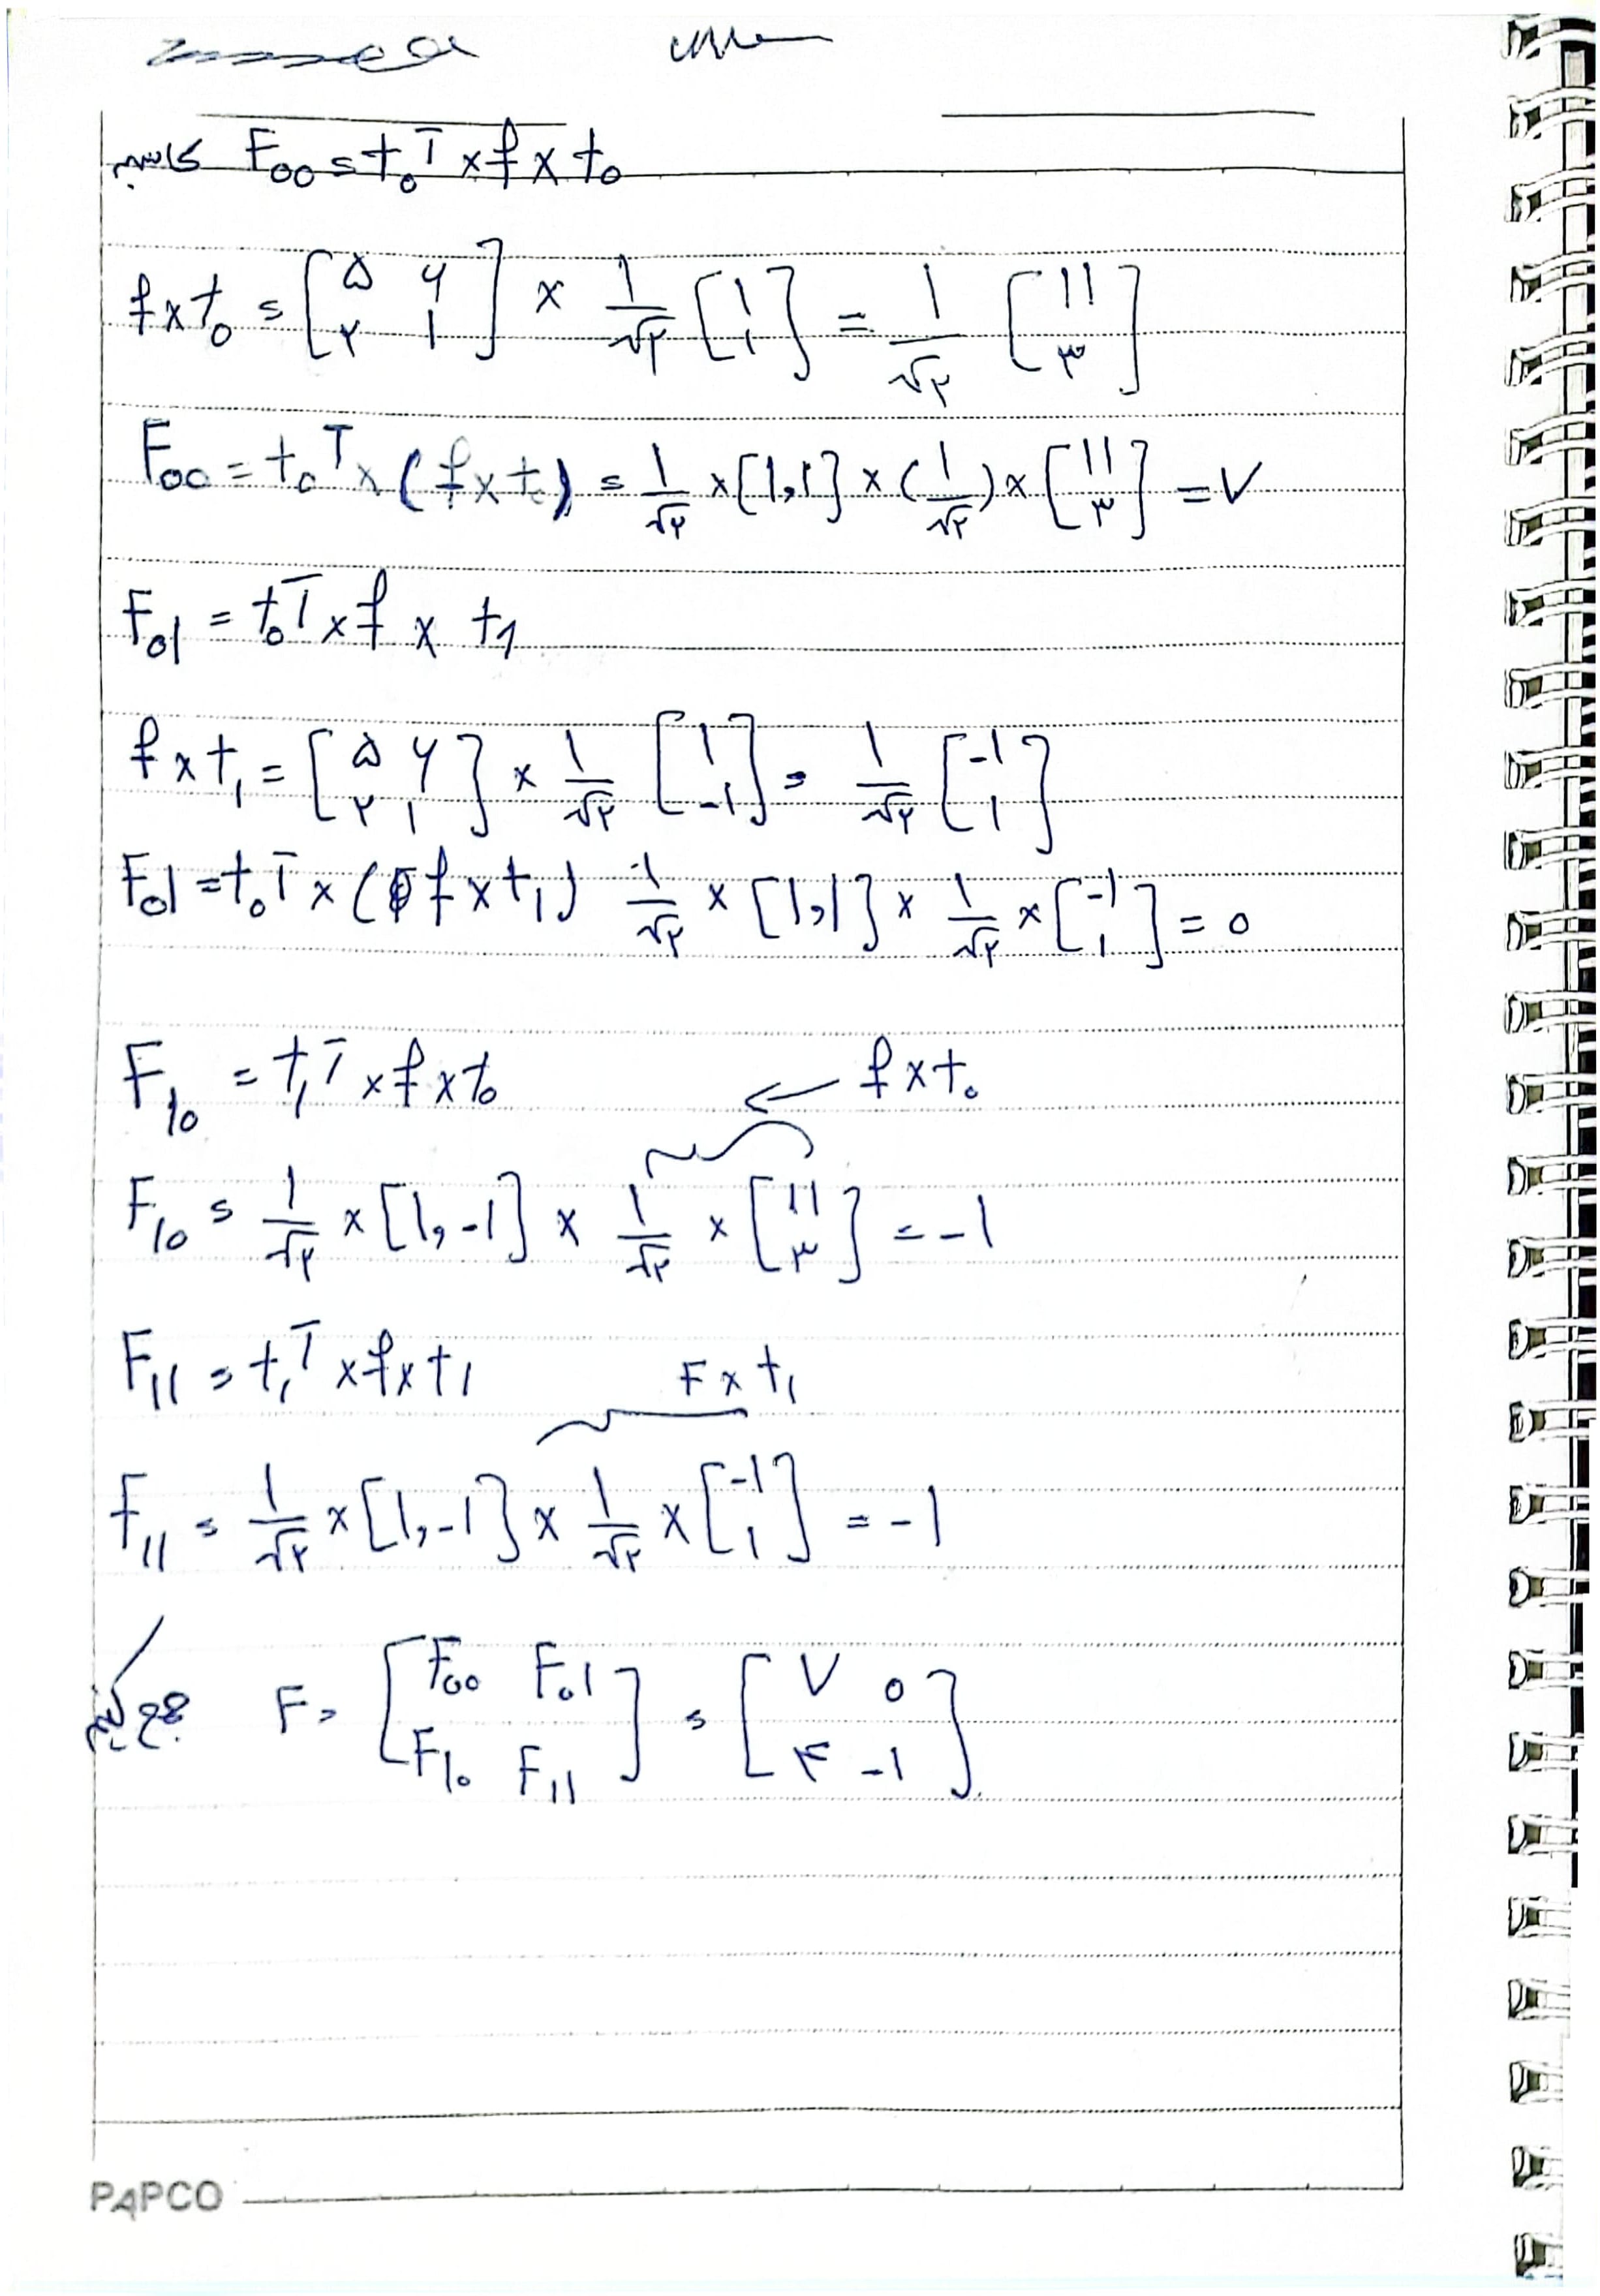 F₀₀ = t₀ᵀ × f × t₀
f × t₀ = [۵ ۶ ; ۲ ۱] × 1/√۲ [1 ; 1] = 1/√۲ [11 ; ۳]
F₀₀ = t₀ᵀ × (f × t₀) = 1/√۲ × [1,1] × (1/√۲) × [11 ; ۳] = ۷
F₀₁ = t₀ᵀ × f × t₁
f × t₁ = [۵ ۶ ; ۲ ۱] × 1/√۲ [1 ; -1] = 1/√۲ [-1 ; 1]
F₀₁ = t₀ᵀ × (f × t₁) 1/√۲ × [1,1] × 1/√۲ × [-1 ; 1] = 0
F₁₀ = t₁ᵀ × f × t₀ ← f × t₀
F₁₀ = 1/√۲ × [1,-1] × 1/√۲ × [11 ; ۳] = -1
F₁₁ = t₁ᵀ × f × t₁ F × t₁
F₁₁ = 1/√۲ × [1,-1] × 1/√۲ × [-1 ; 1] = -1
F = [F₀₀ F₀₁ ; F₁₀ F₁₁] = [۷ 0 ; ۴ -1]
PAPCO